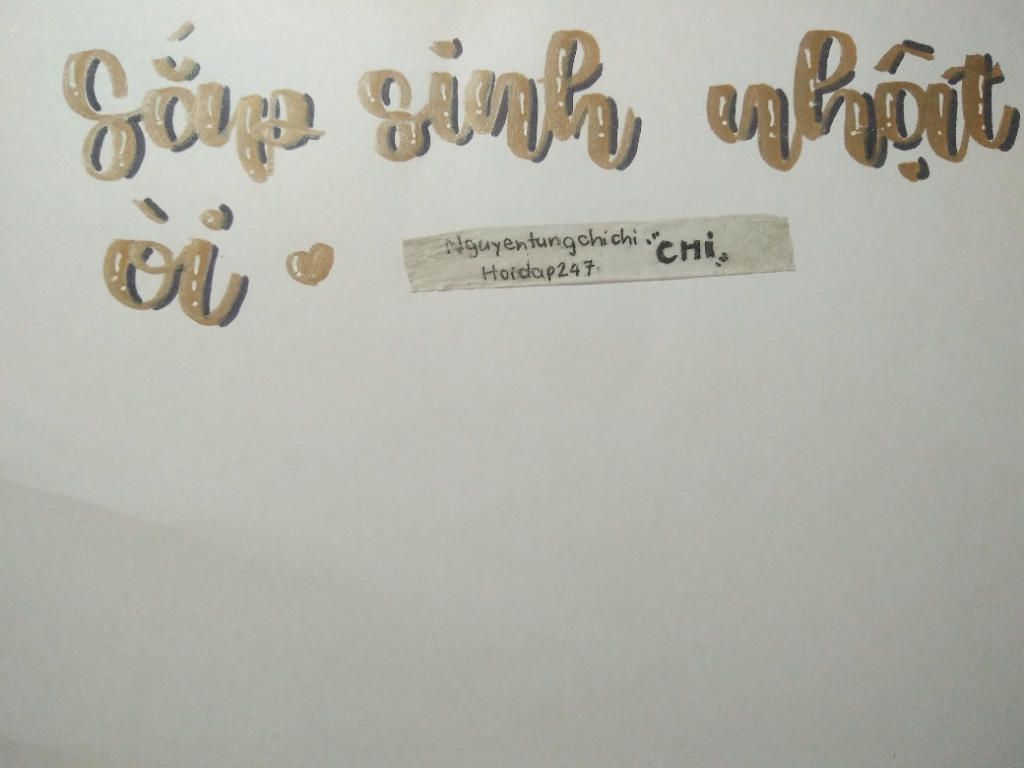 Sắp sinh nhật
ời
Nguyentungchichi "CHi"
Hoidap247